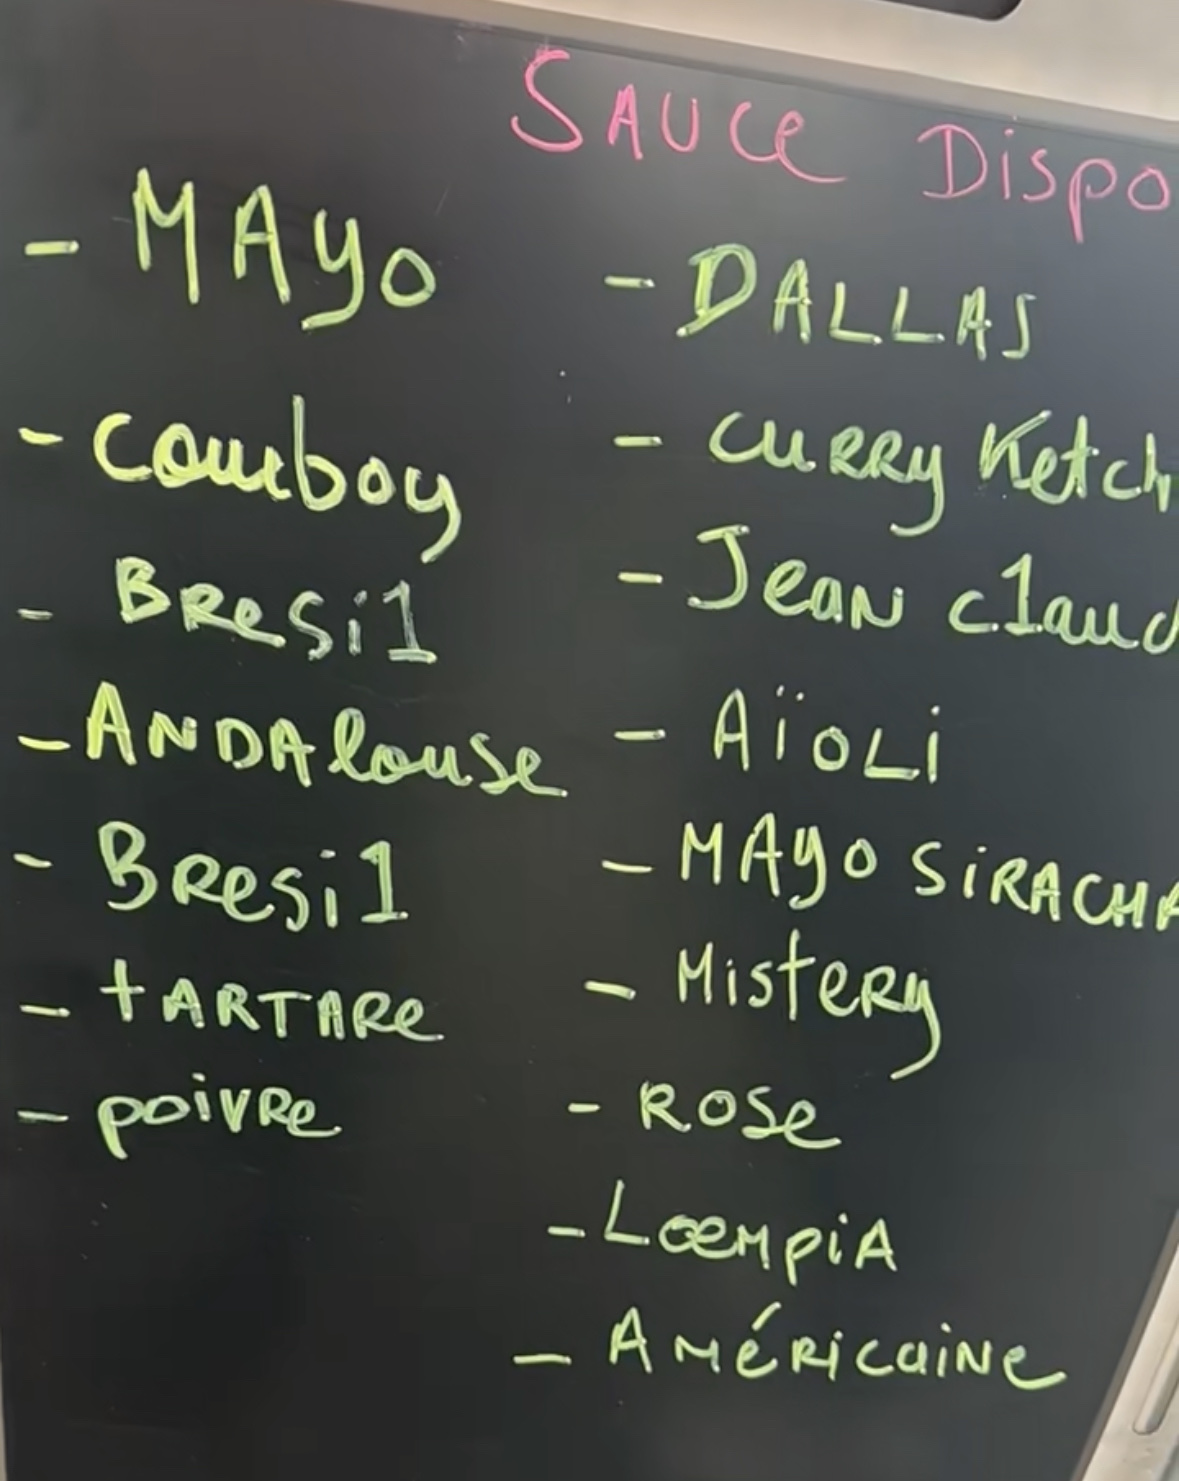 Sauce Dispo
- MAyo
- Cowboy
- Bresil
- ANDAlouse
- Bresil
- tARTARe
- poivRe
- DALLAS
- CuRRy Ketch
- Jean claud
- AïoLi
- MAyo SiRACHA
- MisteRy
- Rose
- LoempiA
- AméRicaine